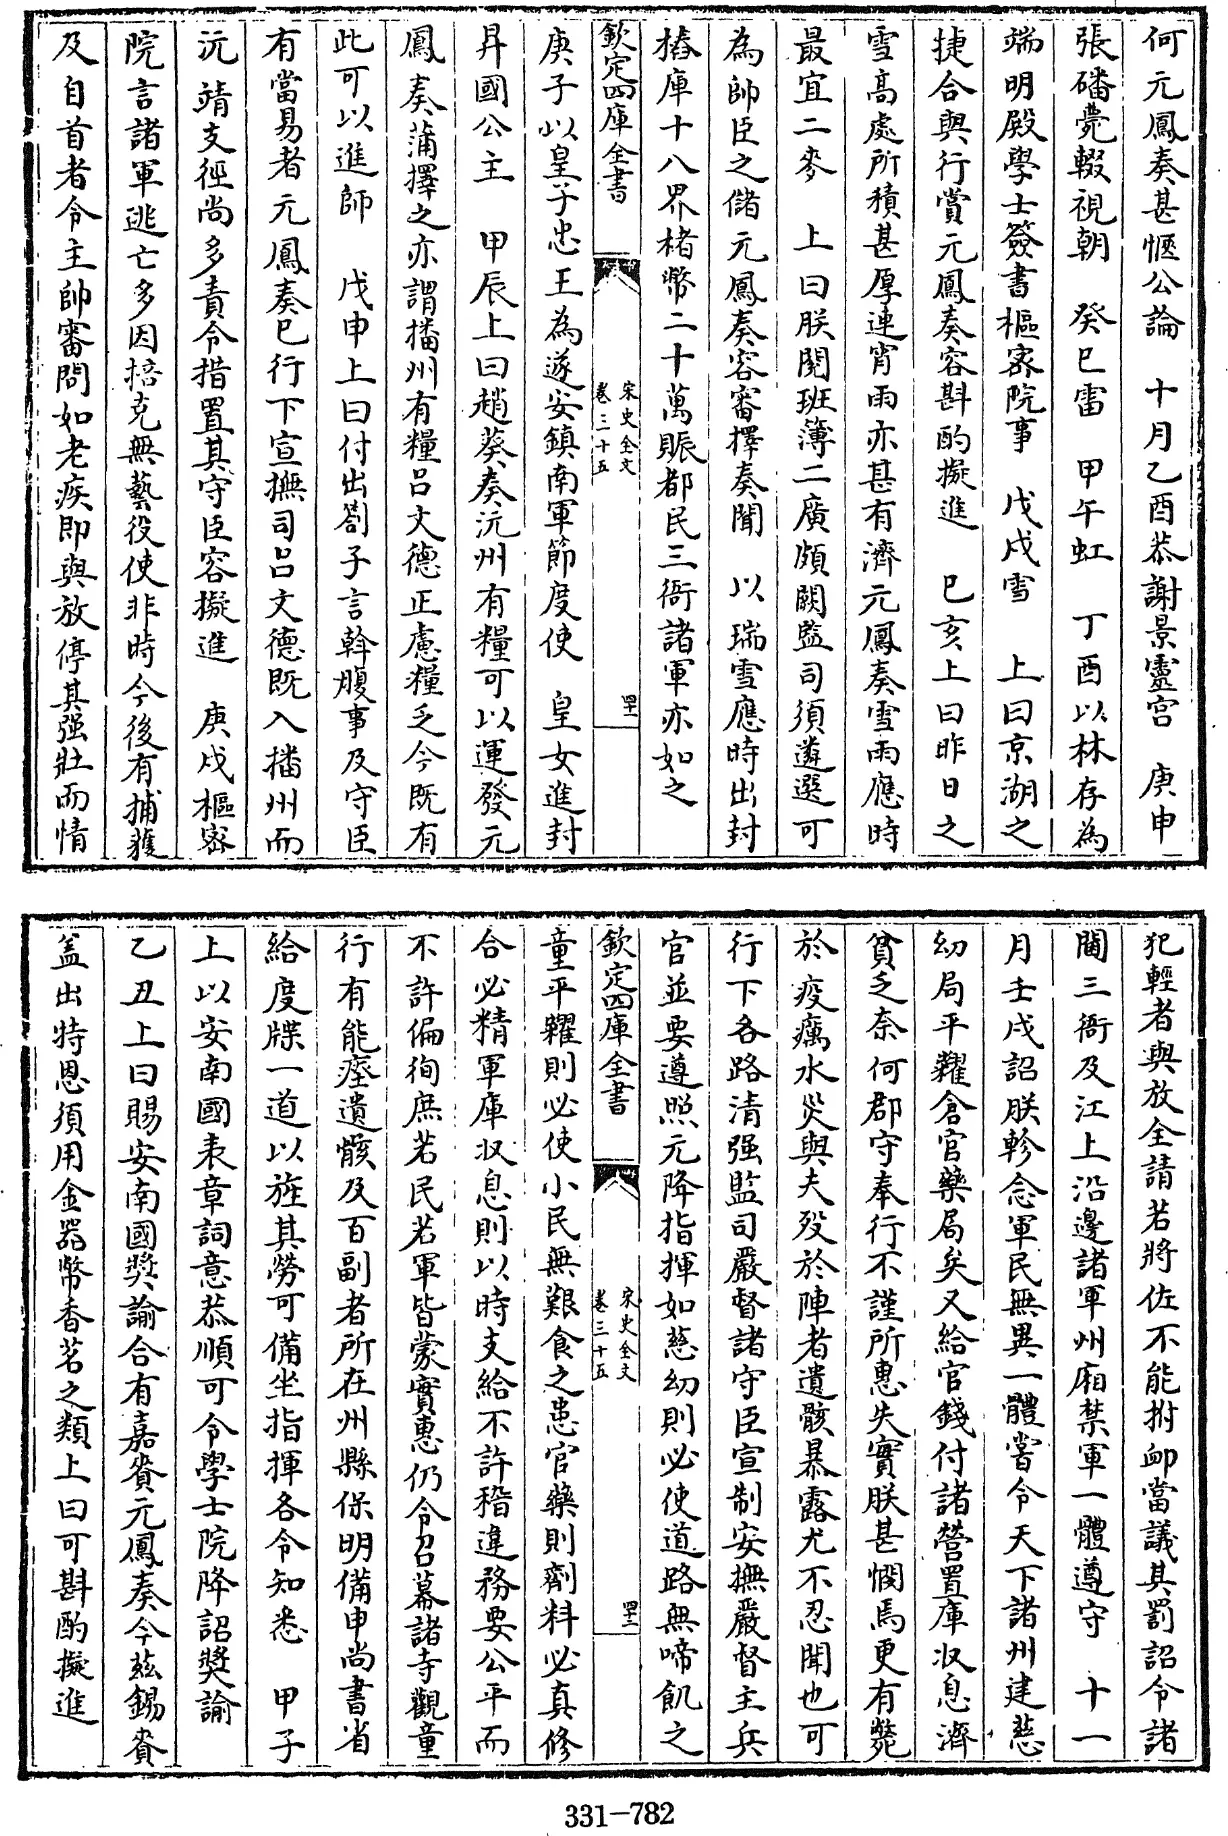 何元鳳奏甚愜公論　十月乙酉恭謝景靈宫　庚申
張磻薨輟視朝　癸巳雷　甲午虹　丁酉以林存為
端明殿學士簽書樞密院事　戊戌雪　上曰京湖之
捷合與行賞元鳳奏容斟酌擬進　己亥上曰昨日之
雪高處所積甚厚連宵雨亦甚有濟元鳳奏雪雨應時
最宜二麥　上曰朕閱班簿二廣頗闕監司須遴選可
為帥臣之儲元鳳奏容審擇奏聞　以瑞雪應時出封
樁庫十八界楮幣二十萬賑都民三衙諸軍亦如之
欽定四庫全書
宋史全文
卷三十五
四十一
庚子以皇子忠王為遂安鎮南軍節度使　皇女進封
昇國公主　甲辰上曰趙葵奏沅州有糧可以運發元
鳳奏蒲擇之亦謂播州有糧吕文德正慮糧乏今既有
此可以進師　戊申上曰付出劄子言斡腹事及守臣
有當易者元鳳奏已行下宣撫司吕文德既入播州而
沅靖支徑尚多責令措置其守臣容擬進　庚戌樞密
院言諸軍逃亡多因掊克無藝役使非時今後有捕獲
及自首者令主帥審問如老疾即與放停其强壯而情
犯輕者與放全請若將佐不能拊卹當議其罰詔令諸
閫三衙及江上沿邊諸軍州廂禁軍一體遵守　十一
月壬戌詔朕軫念軍民無異一體嘗令天下諸州建慈
幼局平糶倉官藥局矣又給官錢付諸營置庫收息濟
貧乏奈何郡守奉行不謹所惠失實朕甚憫焉更有斃
於疫癘水災與夫殁於陣者遺骸暴露尤不忍聞也可
行下各路清强監司嚴督諸守臣宣制安撫嚴督主兵
官並要遵照元降指揮如慈幼則必使道路無啼飢之
欽定四庫全書
宋史全文
卷三十五
四十二
童平糶則必使小民無艱食之患官藥則劑料必真修
合必精軍庫收息則以時支給不許稽違務要公平而
不許偏徇庶若民若軍皆蒙實惠仍令召募諸寺觀童
行有能瘞遺骸及百副者所在州縣保明備申尚書省
給度牒一道以旌其勞可備坐指揮各令知悉　甲子
上以安南國表章詞意恭順可令學士院降詔奬諭
乙丑上曰賜安南國奬諭合有嘉賚元鳳奏今兹錫賚
盖出特恩須用金器幣香茗之類上曰可斟酌擬進
331-782